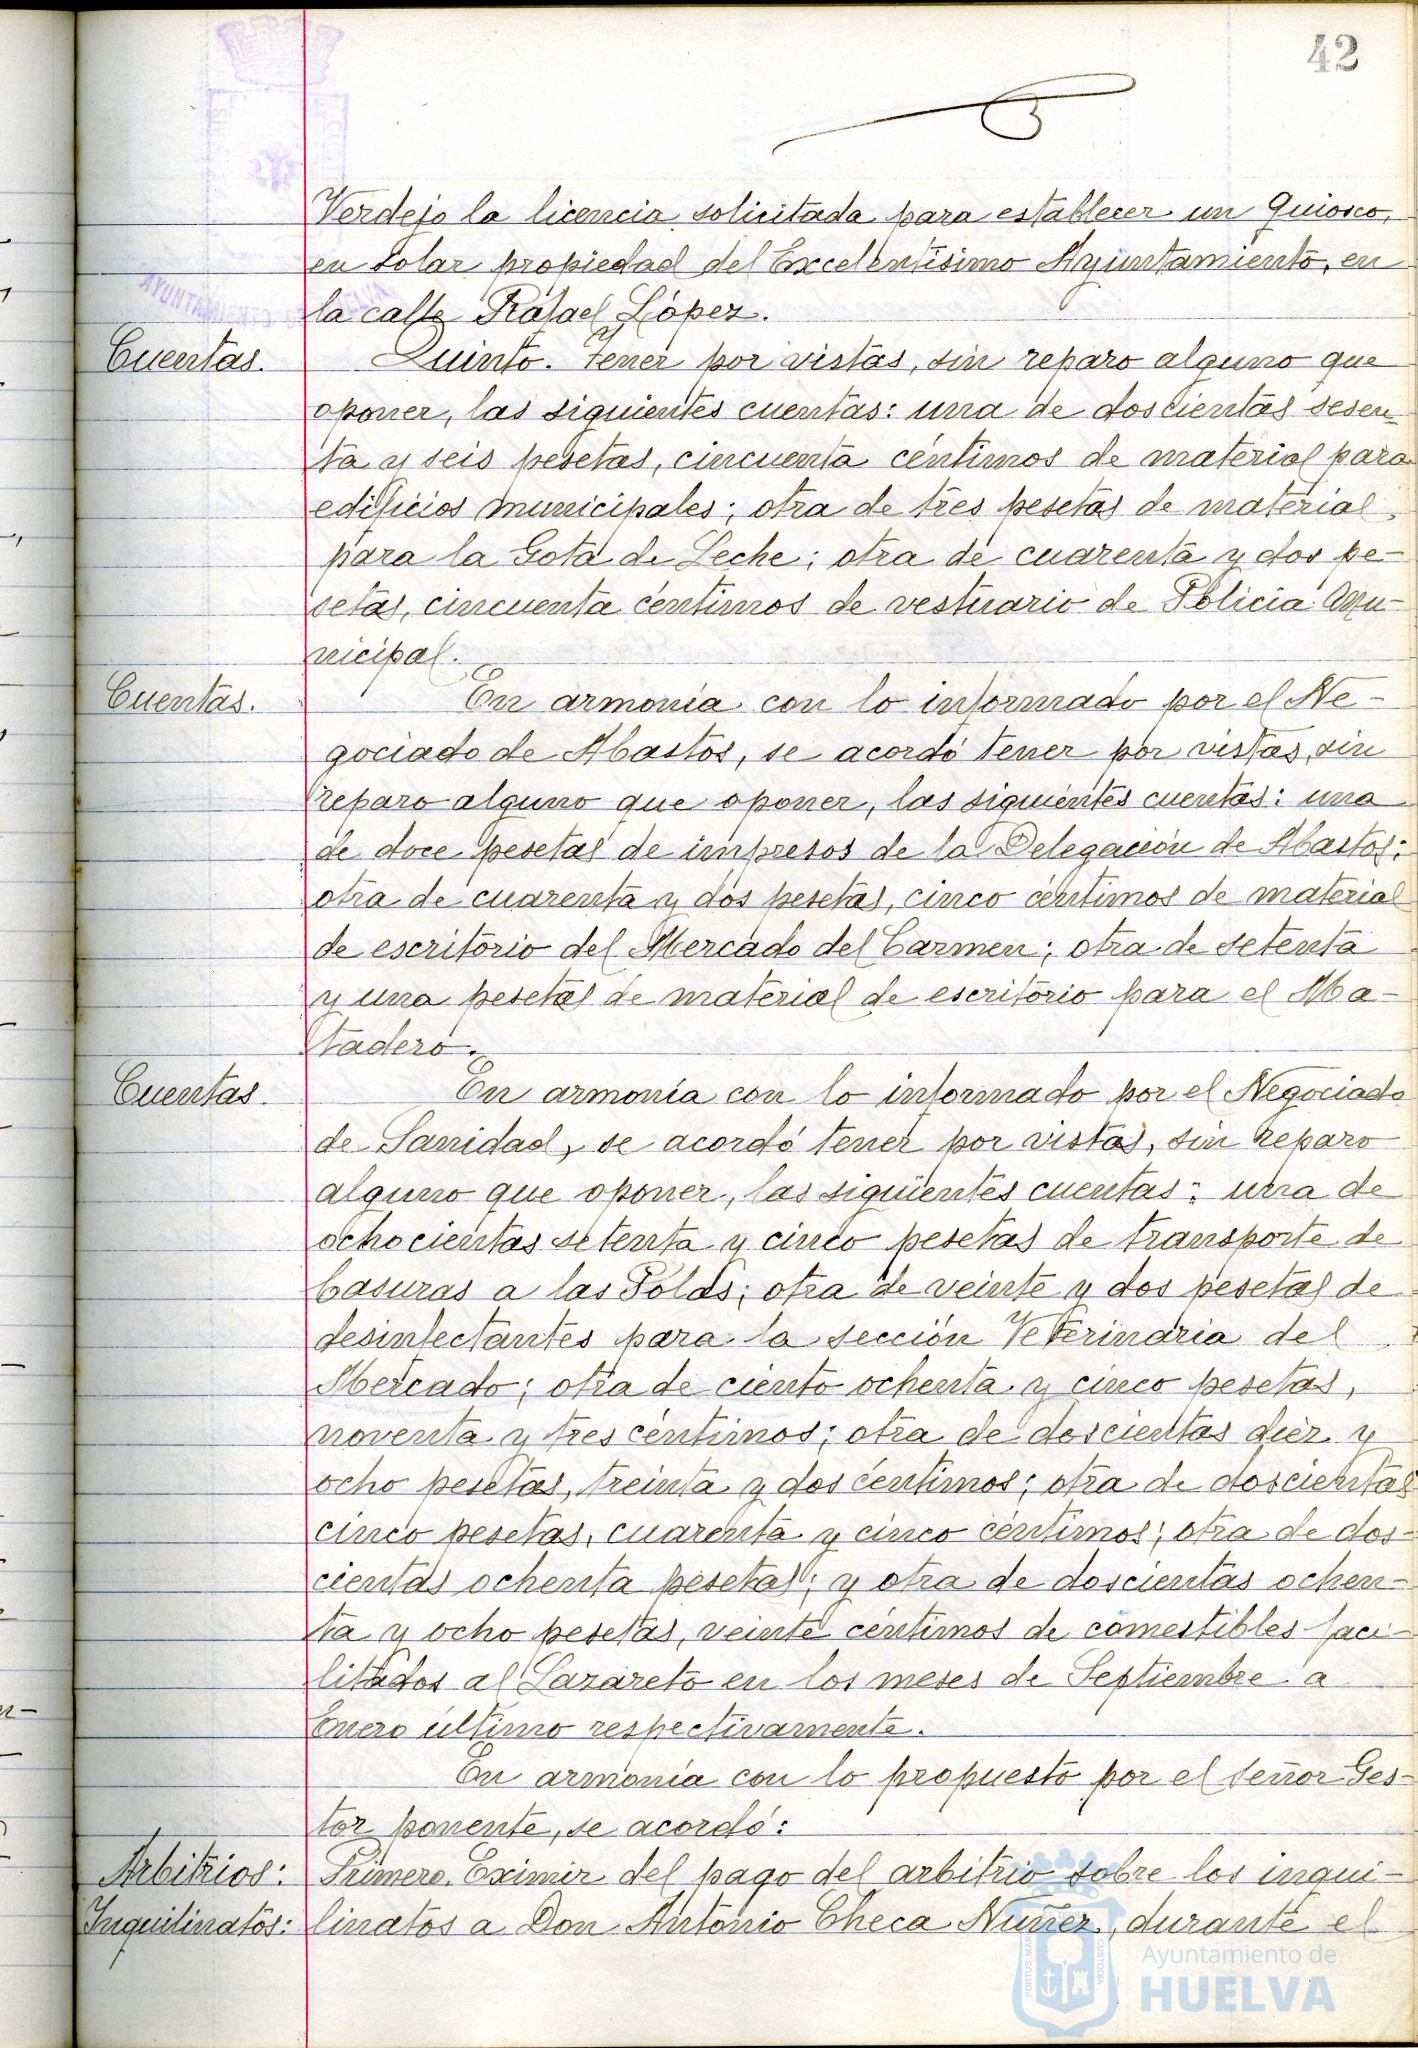 42
Verdejo la licencia solicitada para establecer un Quiosco,
en solar propiedad del Excelentísimo Ayuntamiento, en
la calle Rafael López.
AYUNTAMIENTO DE HUELVA
Cuentas. Quinto. Tener por vistas, sin reparo alguno que
oponer, las siguientes cuentas: una de doscientas sesen-
ta y seis pesetas, cincuenta céntimos de material para
edificios municipales; otra de tres pesetas de material
para la Gota de Leche; otra de cuarenta y dos pe-
setas, cincuenta céntimos de vestuario de Policía Mu-
nicipal.
Cuentas. En armonía con lo informado por el Ne-
gociado de Abastos, se acordó tener por vistas, sin
reparo alguno que oponer, las siguientes cuentas: una
de doce pesetas de impresos de la Delegación de Abastos;
otra de cuarenta y dos pesetas, cinco céntimos de material
de escritorio del Mercado del Carmen; otra de setenta
y una pesetas de material de escritorio para el Ma-
tadero.
Cuentas. En armonía con lo informado por el Negociado
de Sanidad, se acordó tener por vistas, sin reparo
alguno que oponer, las siguientes cuentas: una de
ochocientas setenta y cinco pesetas de transporte de
basuras a las Polas; otra de veinte y dos pesetas de
desinfectantes para la sección Veterinaria del
Mercado; otra de ciento ochenta y cinco pesetas,
noventa y tres céntimos; otra de doscientas diez y
ocho pesetas, treinta y dos céntimos; otra de doscientas
cinco pesetas, cuarenta y cinco céntimos; otra de dos-
cientas ochenta pesetas; y otra de doscientas ochen-
ta y ocho pesetas, veinte céntimos de comestibles faci-
litados al Lazareto en los meses de Septiembre a
Enero último respectivamente.
En armonía con lo propuesto por el señor Ges-
tor ponente, se acordó:
Arbitrios: Primero. Eximir del pago del arbitrio sobre los inqui-
Inquilinatos: linatos a Don Antonio Checa Nuñez, durante el
PORTUS MARIS CUSTODIA
Ayuntamiento de
HUELVA